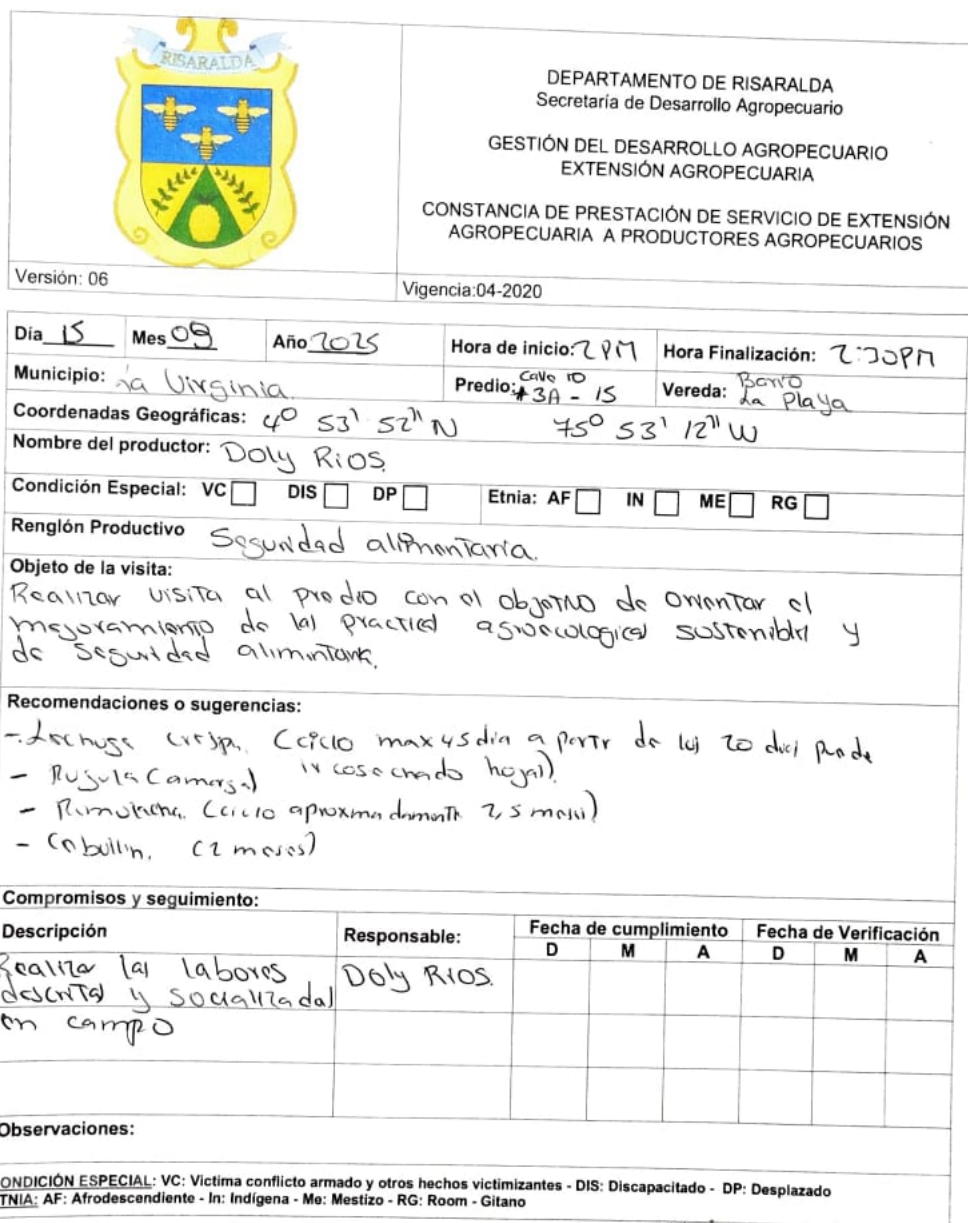 RISARALDA
DEPARTAMENTO DE RISARALDA
Secretaría de Desarrollo Agropecuario
GESTIÓN DEL DESARROLLO AGROPECUARIO
EXTENSIÓN AGROPECUARIA
CONSTANCIA DE PRESTACIÓN DE SERVICIO DE EXTENSIÓN
AGROPECUARIA A PRODUCTORES AGROPECUARIOS
Versión: 06
Vigencia:04-2020
Día 15 Mes 09 Año 2025 Hora de inicio: 2 PM Hora Finalización: 2:30PM
Municipio: La Virginia Predio: Calle 10 #3A - 15 Vereda: Barrio La Playa
Coordenadas Geográficas: 4° 53' 52" N 75° 53' 12" W
Nombre del productor: Doly Rios.
Condición Especial: VC DIS DP Etnia: AF IN ME RG
Renglón Productivo Seguridad alimentaria.
Objeto de la visita:
Realizar visita al predio con el objetivo de orientar el
mejoramiento de las practicas agroecologicas sostenibles y
de seguridad alimentaria.
Recomendaciones o sugerencias:
- Lechuga crespa. (ciclo max 45 dia a partir de los 20 dias puede
ir cosechado hojas).
- Rugula (amarga)
- Remolacha. (ciclo aproximadamente 2,5 meses)
- Cebollin. (2 meses)
Compromisos y seguimiento:
Descripción Responsable: Fecha de cumplimiento Fecha de Verificación
D M A D M A
Realizar las labores Doly Rios.
descritas y socializadas
en campo
Observaciones:
ONDICIÓN ESPECIAL: VC: Victima conflicto armado y otros hechos victimizantes - DIS: Discapacitado - DP: Desplazado
TNIA: AF: Afrodescendiente - In: Indígena - Me: Mestizo - RG: Room - Gitano